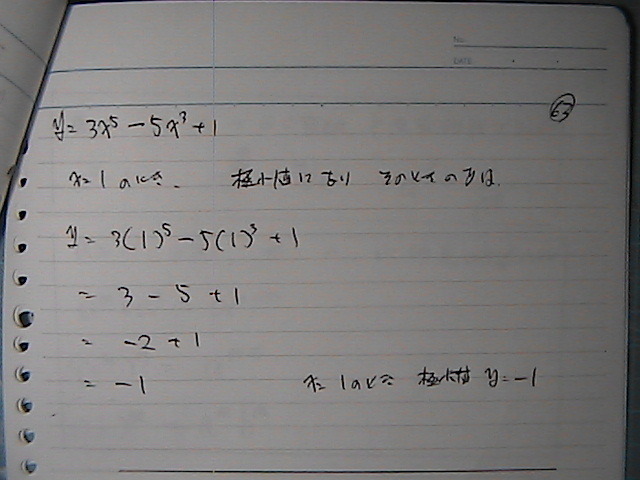 No.
DATE
63
y = 3x⁵ - 5x³ + 1
x = 1 のとき、 極小値になり そのときの yは
y = 3(1)⁵ - 5(1)³ + 1
= 3 - 5 + 1
= -2 + 1
= -1 x = 1 のとき 極小値 y = -1